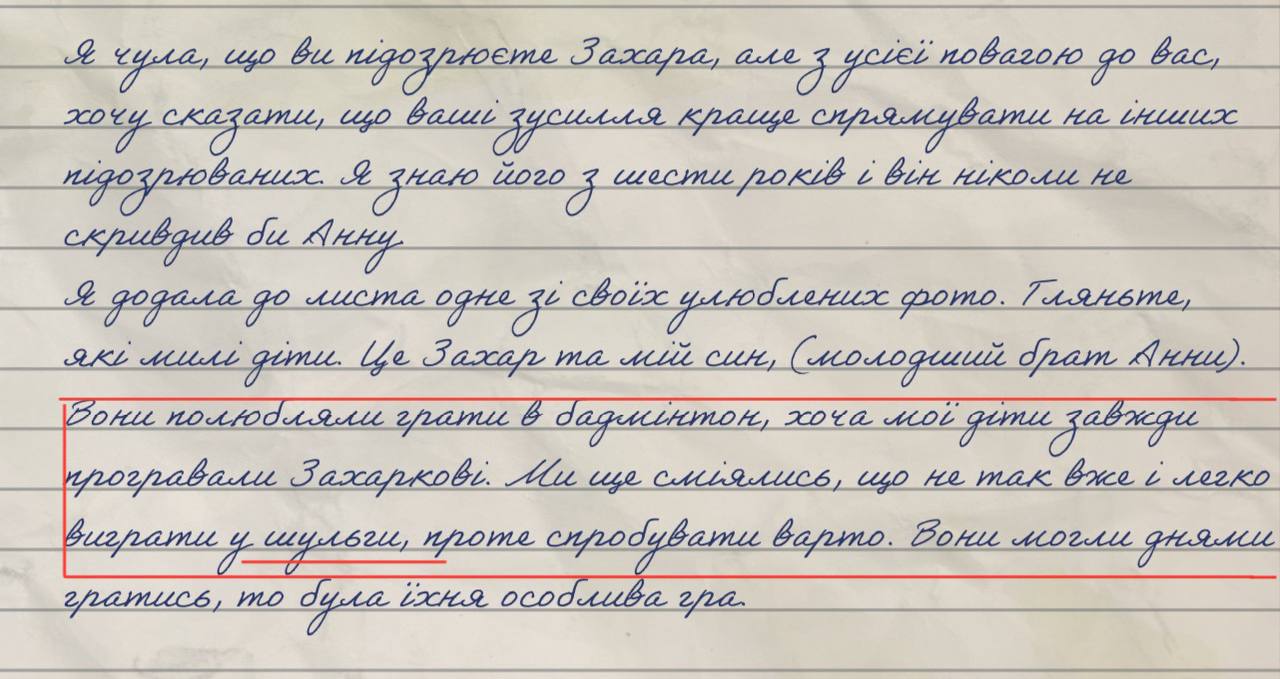 Я чула, що ви підозрюєте Захара, але з усієї повагою до вас,
хочу сказати, що ваші зусилля краще спрямувати на інших
підозрюваних. Я знаю його з шести років і він ніколи не
скривдив би Анну.
Я додала до листа одне зі своїх улюблених фото. Гляньте,
які милі діти. Це Захар та мій син, (молодший брат Анни).
Вони полюбляли грати в бадмінтон, хоча мої діти завжди
програвали Захаркові. Ми ще сміялись, що не так вже і легко
виграти у шульги, проте спробувати варто. Вони могли днями
гратись, то була їхня особлива гра.